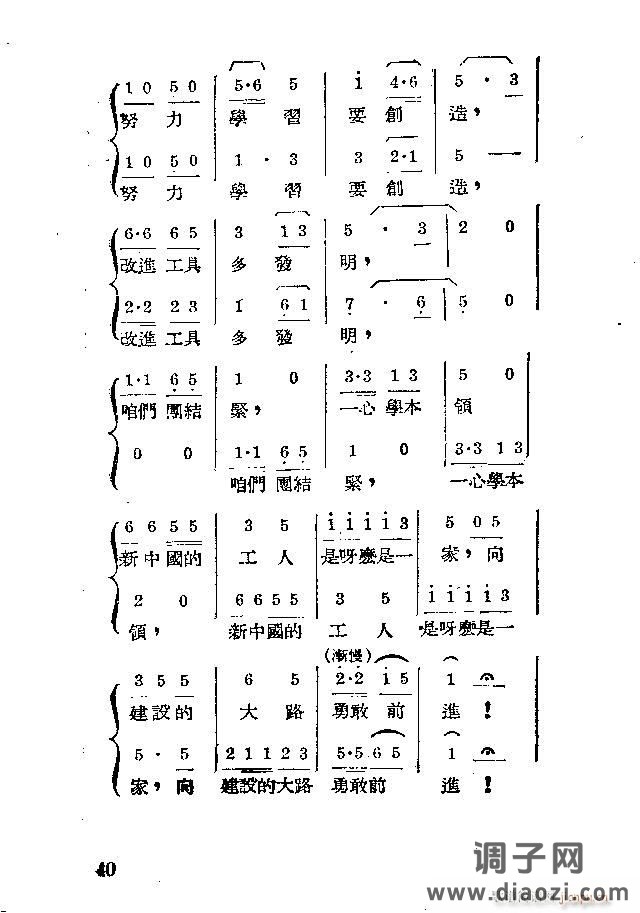 1 0 5 0 5·6 5 i 4·6 5 · 3
努 力 學 習 要 創 造，
1 0 5 0 1 · 3 3 2·1 5 —
努 力 學 習 要 創 造，
6·6 6 5 3 1 3 5 · 3 2 0
改進 工具 多 發 明，
2·2 2 3 1 6 1 7 · 6 5 0
改進 工具 多 發 明，
1·1 6 5 1 0 3·3 1 3 5 0
咱們 團結 緊， 一心 學本 領
0 0 1·1 6 5 1 0 3·3 1 3
咱們 團結 緊， 一心學本
6 6 5 5 3 5 i i i i 3 5 0 5
新中國的 工 人 是呀應是一 家，向
2 0 6 6 5 5 3 5 i i i i 3
領， 新中國的 工 人 是呀應是一
(漸慢)
3 5 5 6 5 2·2 i 5 1
建設的 大 路 勇敢 前 進！
5 · 5 2 1 1 2 3 5·5 6 5 1
家，向 建設的大路 勇敢前 進！
40
调子网
www.diaozi.com